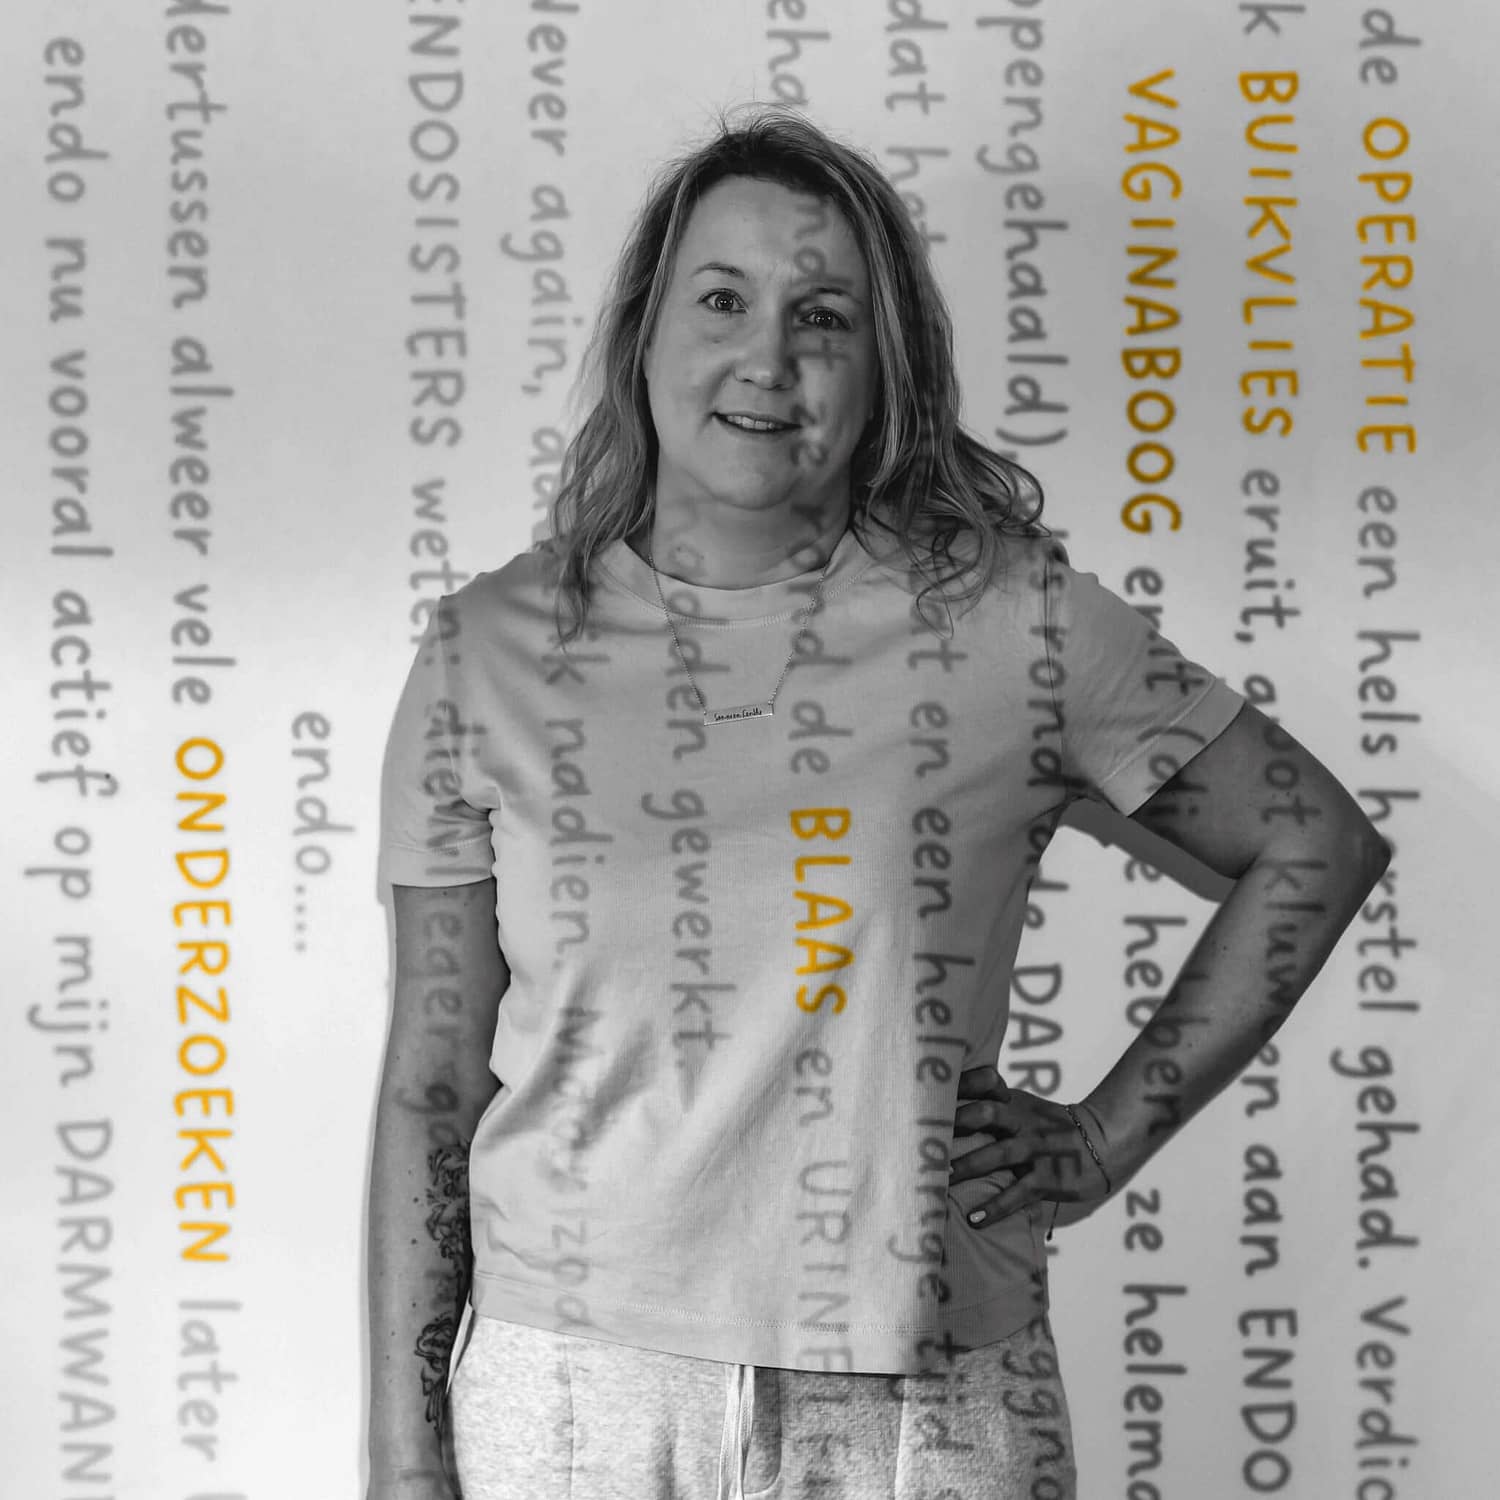 de OPERATIE een hels herstel gehad. Verdic
k BUIKVLIES eruit, groot kluwen aan ENDO
VAGINABOOG eruit (die hebben ze helema
ppengehaald) rond de DARME
dat het en een hele lange tijd
rond de BLAAS en URINELEI
gewerkt.
Never again, ik nadien. Maar
ENDOSISTERS weten:
endo....
dertussen alweer vele ONDERZOEKEN later
endo nu vooral actief op mijn DARMWAN